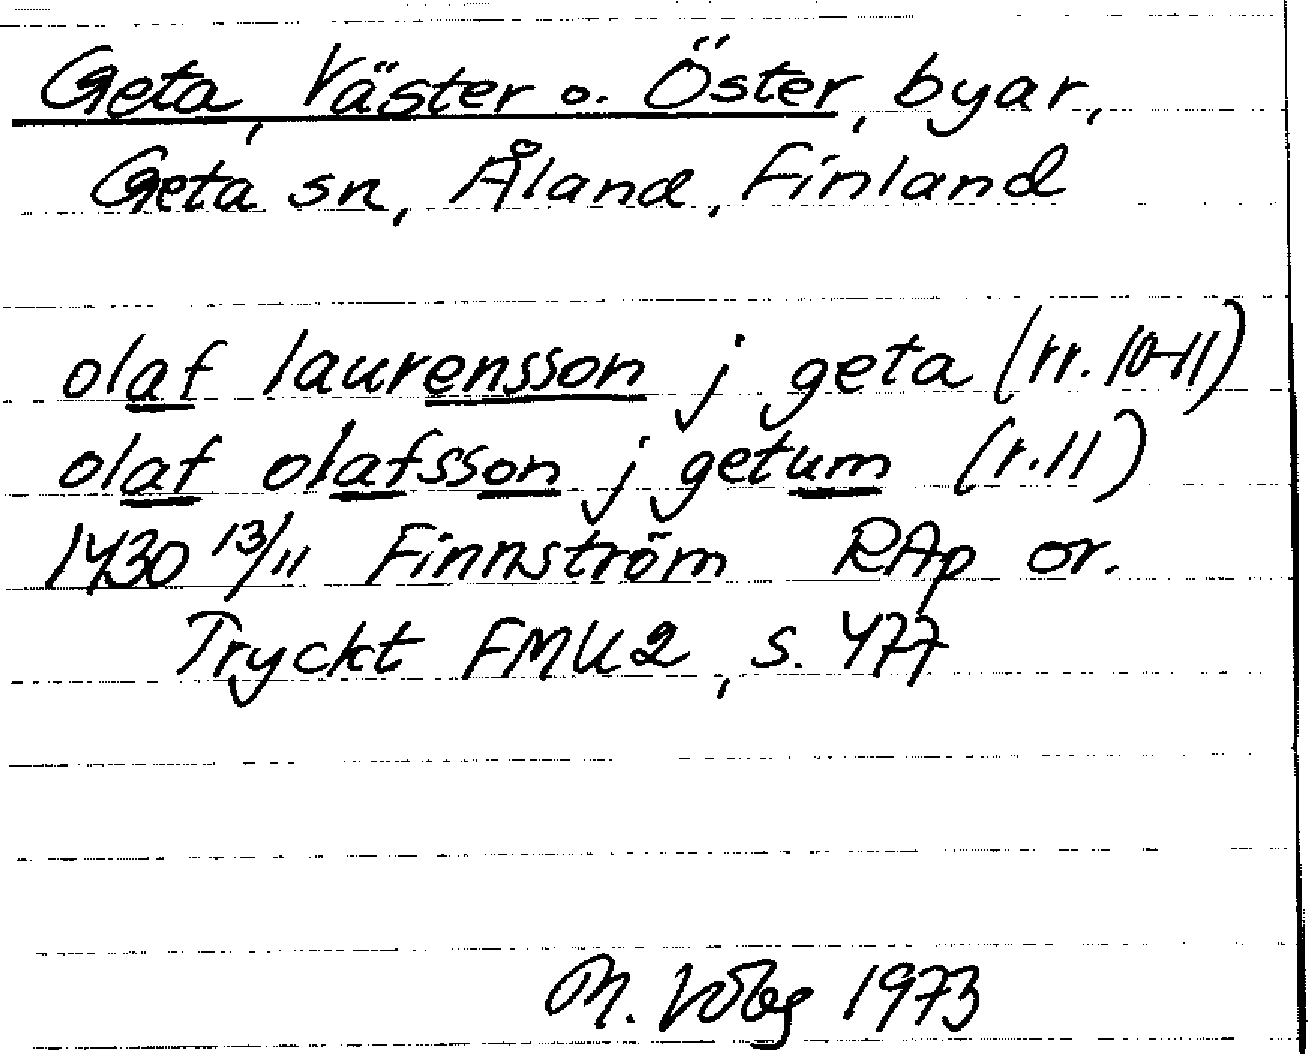 Geta, Väster o. Öster, byar,
Geta sn, Åland, Finland
olaf laurensson j geta (rr. 10-11)
olaf olafsson j getum (r. 11)
1430 13/11 Finnström RAp or.
Tryckt FMU 2, s. 477
M. 1973